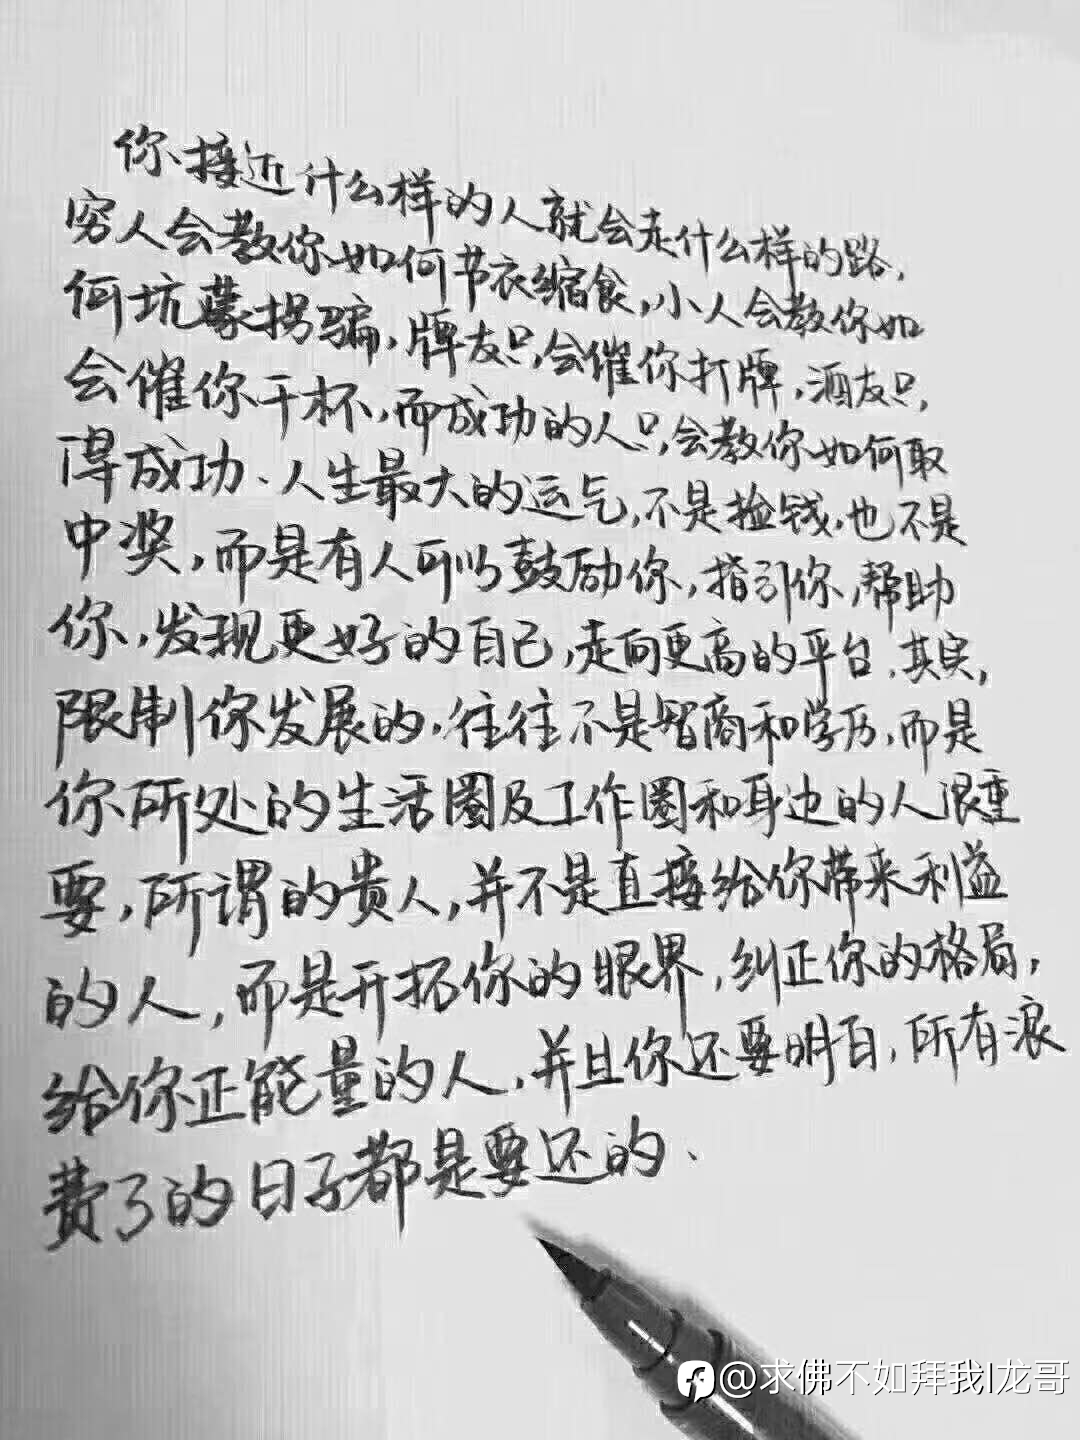 你接近什么样的人就会走什么样的路，
穷人会教你如何节衣缩食，小人会教你如
何坑蒙拐骗，牌友只会催你打牌，酒友只
会催你干杯，而成功的人只会教你如何取
得成功、人生最大的运气，不是捡钱，也不是
中奖，而是有人可以鼓励你，指引你，帮助
你，发现更好的自己，走向更高的平台，其实，
限制你发展的，往往不是智商和学历，而是
你所处的生活圈及工作圈和身边的人很重
要，所谓的贵人，并不是直接给你带来利益
的人，而是开拓你的眼界，纠正你的格局，
给你正能量的人，并且你还要明白，所有浪
费了的日子都是要还的、
@求佛不如拜我|龙哥